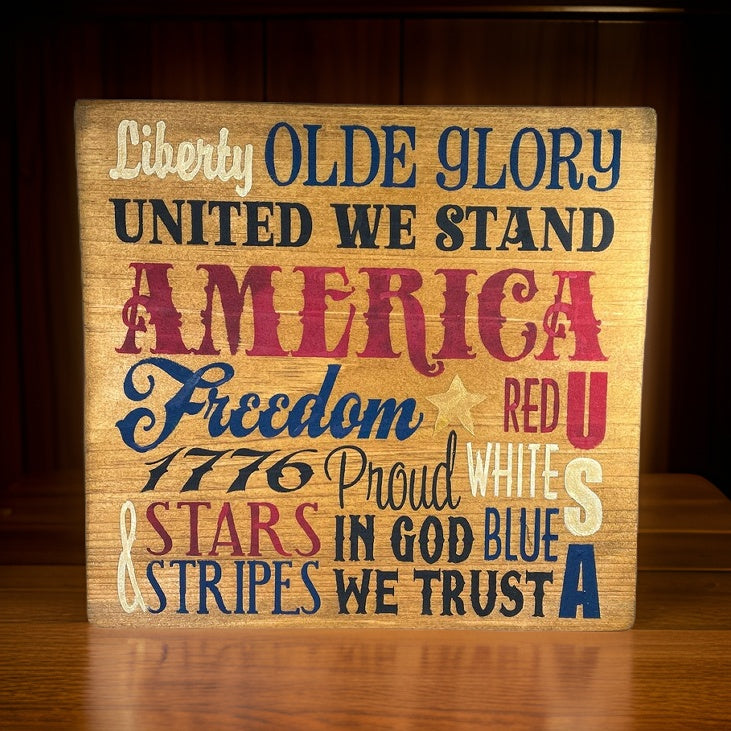 Liberty OLDE GLORY
UNITED WE STAND
AMERICA
Freedom
RED
WHITE
BLUE
USA
1776 Proud
& STARS
STRIPES
IN GOD
WE TRUST